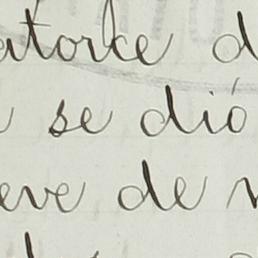 atorce d
se dió
eve de